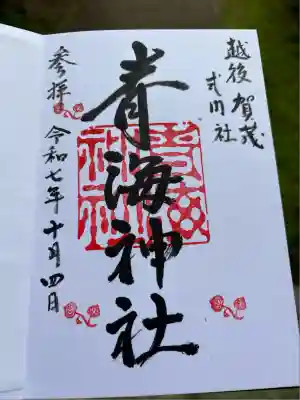 越後 賀茂
式内社
青海神社
青海神社
参拝
令和七年十月四日